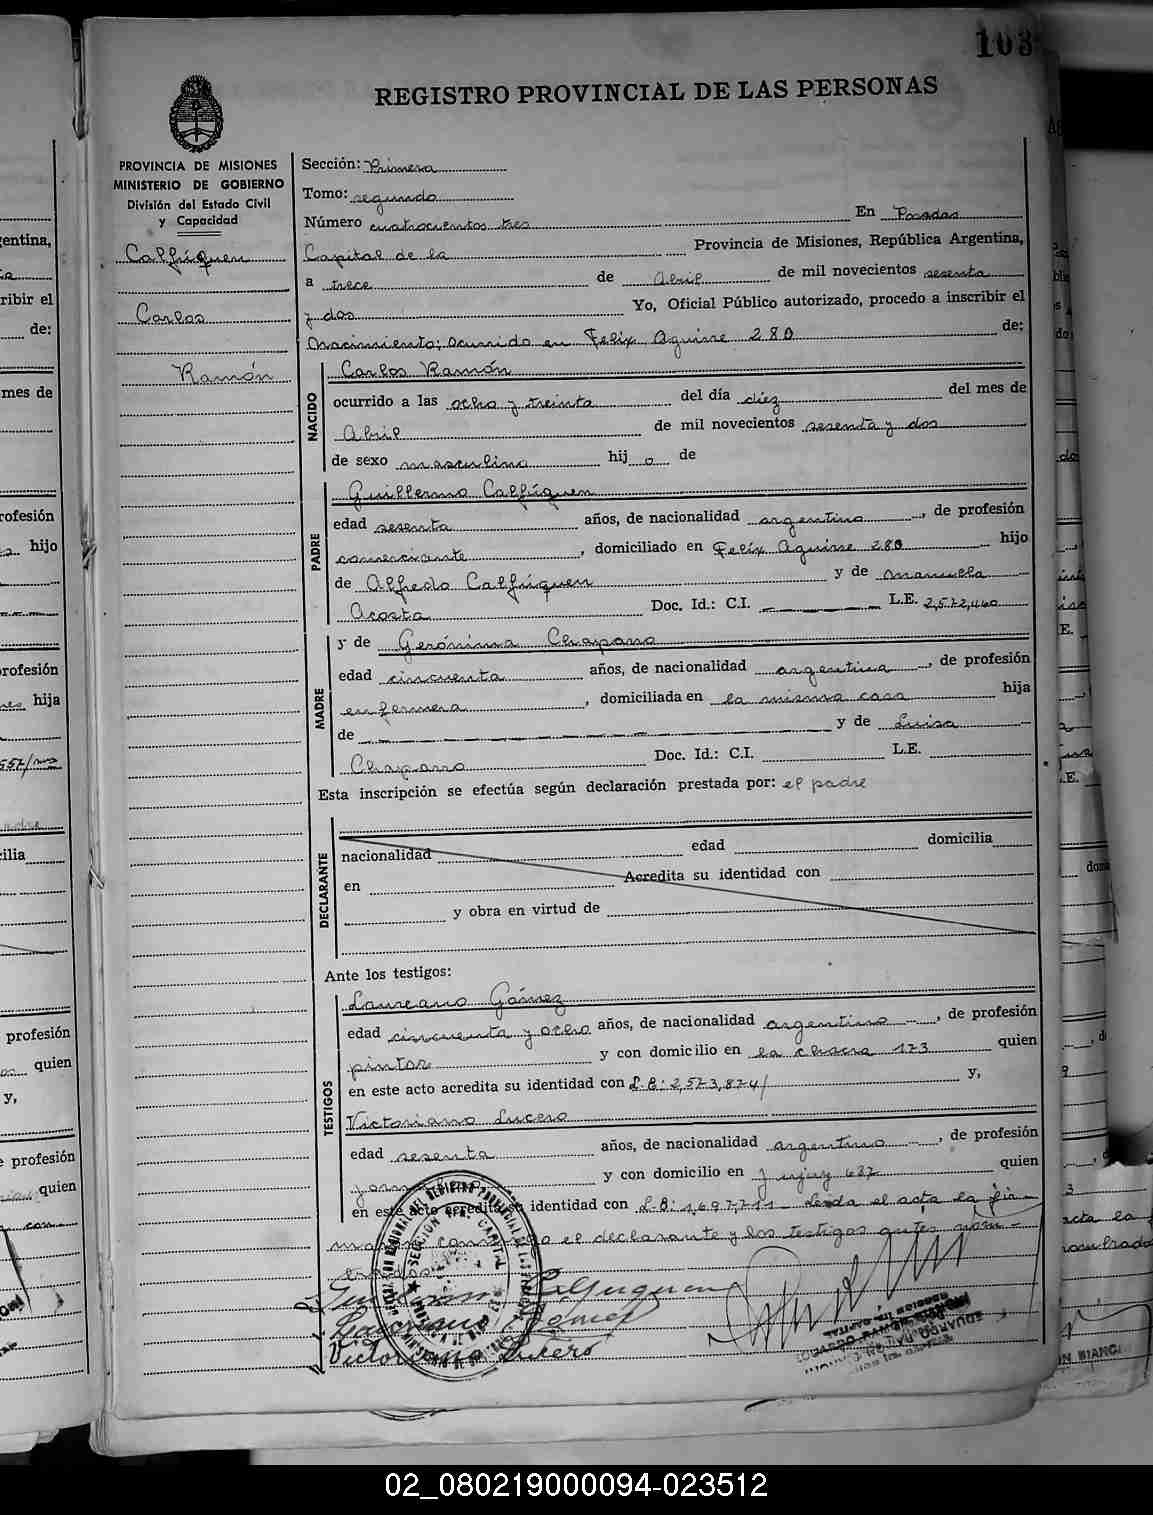 103
REGISTRO PROVINCIAL DE LAS PERSONAS
PROVINCIA DE MISIONES
MINISTERIO DE GOBIERNO
División del Estado Civil
y Capacidad
Calfúquen
Carlos
Ramón
Sección: Primera
Tomo: segundo
Número cuatrocientos tres En Posadas
Capital de la Provincia de Misiones, República Argentina,
a trece de Abril de mil novecientos sesenta
y dos Yo, Oficial Público autorizado, procedo a inscribir el
Nacimiento; ocurrido en Felix Aguirre 280 de:
NACIDO
Carlos Ramón
ocurrido a las ocho y treinta del día diez del mes de
Abril de mil novecientos sesenta y dos
de sexo masculino hijo de
PADRE
Guillermo Calfúquen
edad sesenta años, de nacionalidad argentino, de profesión
comerciante, domiciliado en Felix Aguirre 280 hijo
de Alfredo Calfúquen y de Manuela
Acosta Doc. Id.: C.I. L.E. 2,572,460
MADRE
y de Gerónima Chaparro
edad cincuenta años, de nacionalidad argentina, de profesión
enfermera, domiciliada en la misma casa hija
de y de Luisa
Chaparro Doc. Id.: C.I. L.E.
Esta inscripción se efectúa según declaración prestada por: el padre
DECLARANTE
nacionalidad edad domicilia
en Acredita su identidad con
y obra en virtud de
Ante los testigos:
TESTIGOS
Laureano Gómez
edad cincuenta y ocho años, de nacionalidad argentino, de profesión
pintor y con domicilio en la chacra 173 quien
en este acto acredita su identidad con L.E: 2,573,874/ y,
Victoriano Lucero
edad sesenta años, de nacionalidad argentino, de profesión
y con domicilio en Jujuy 637 quien
en este acto acredita su identidad con L.E: 1,697,711 Leida el acta la fir-
man conmigo el declarante y los testigos antes nom-
brados
Guillermo Calfuquen
Laureano Gómez
Victoriano Lucero
EDUARDO RAMON BIANCHI
02_080219000094-023512